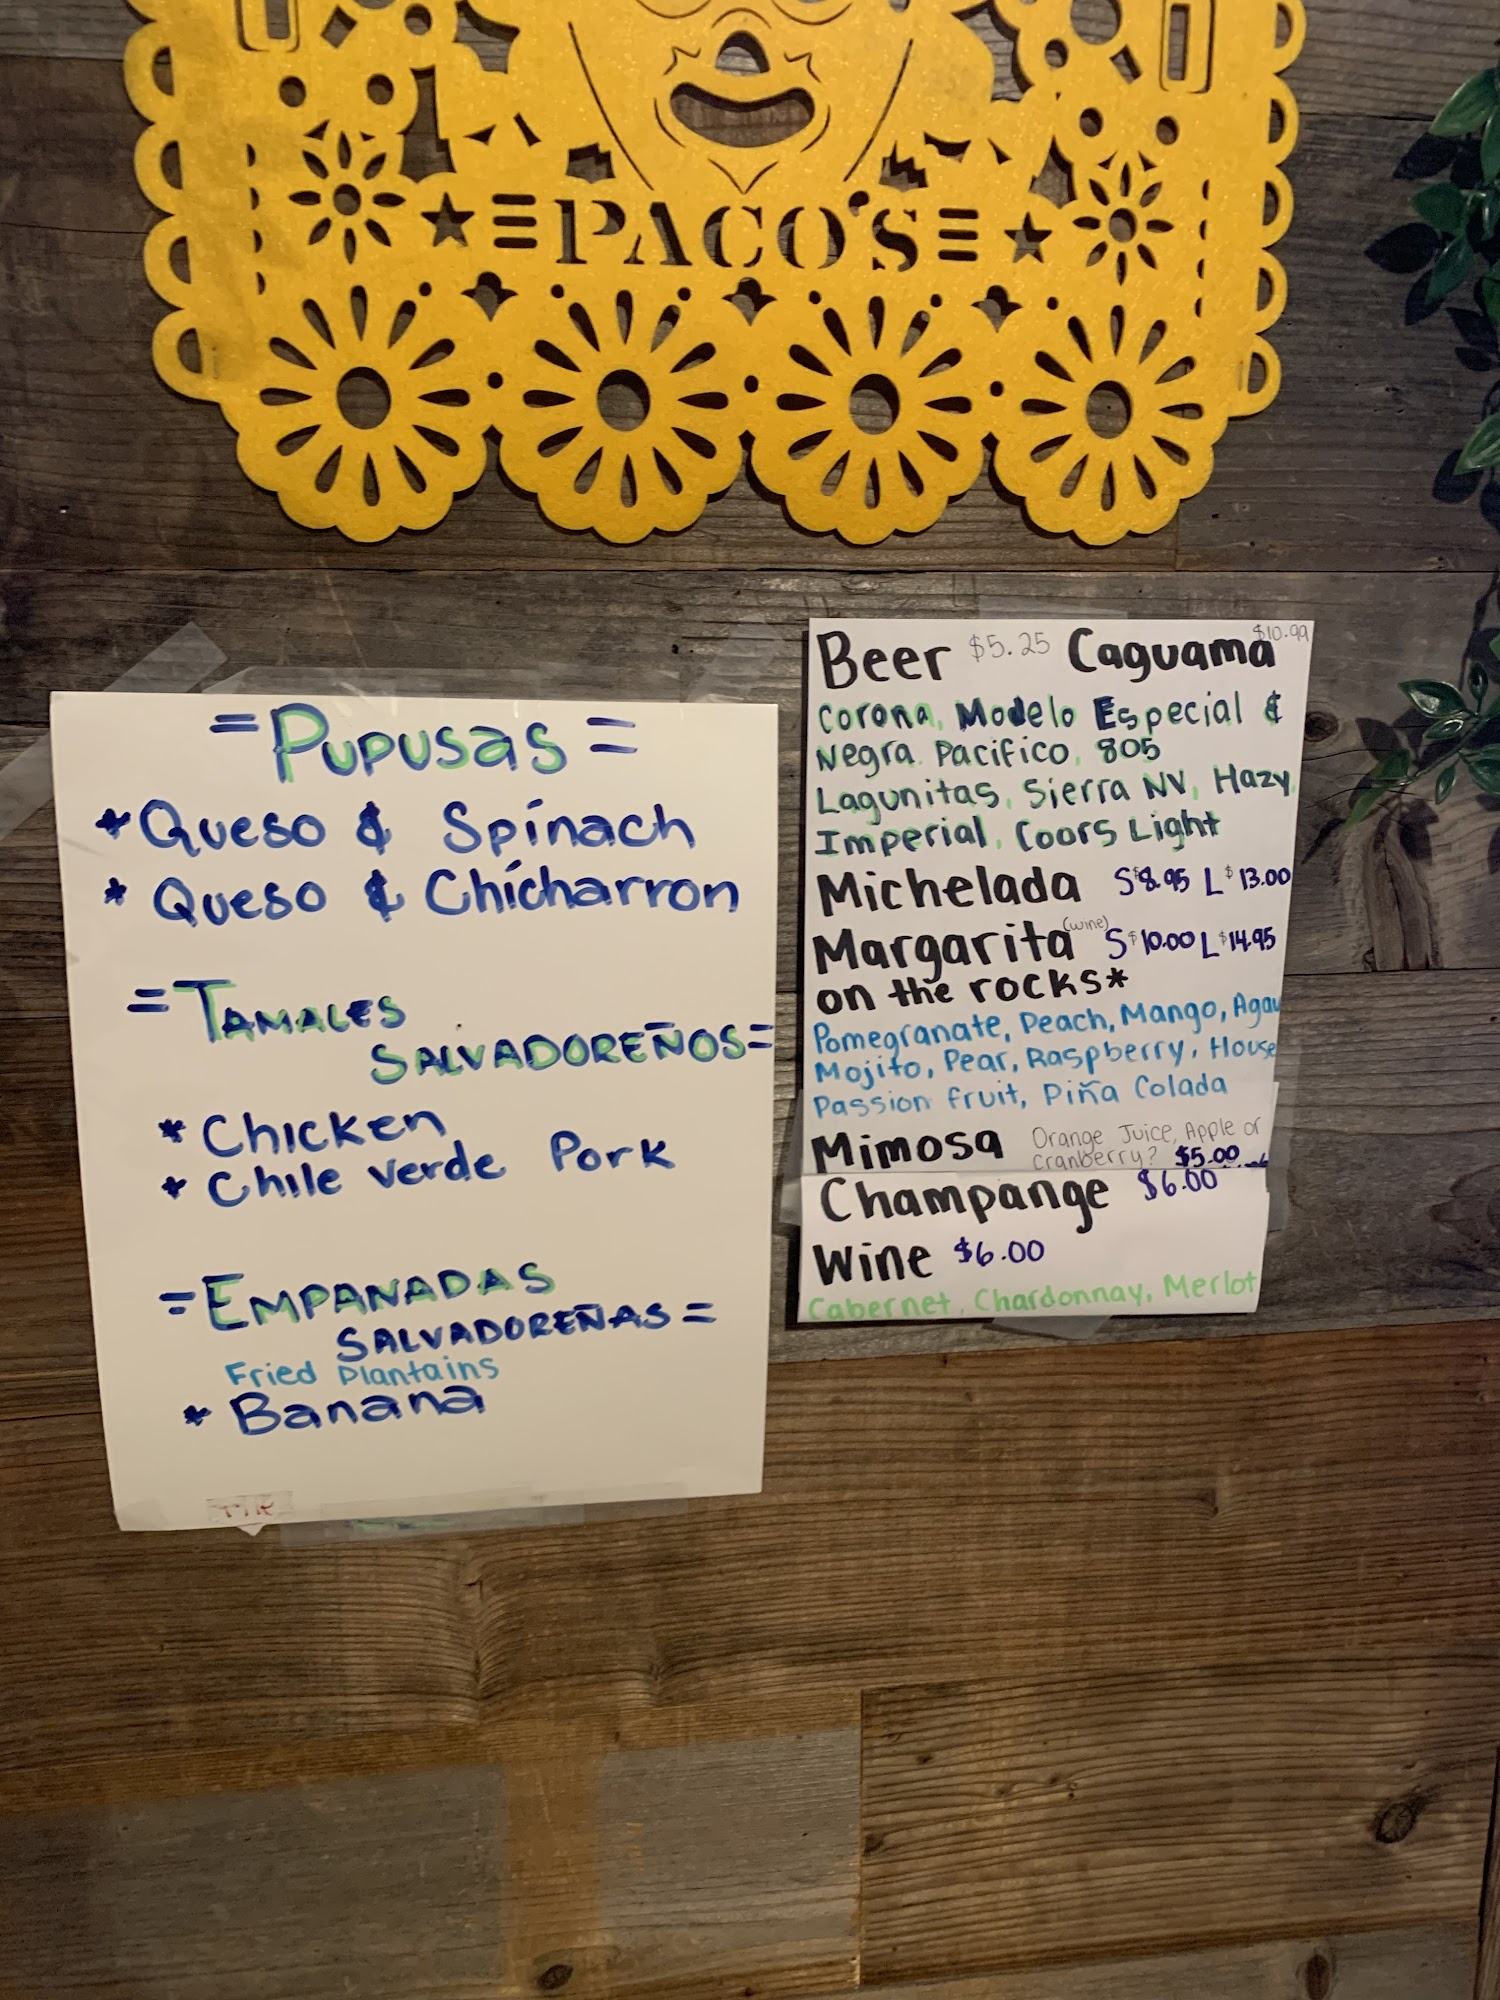 PACO'S
= Pupusas =
* Queso & Spinach
* Queso & Chicharron
= TAMALES
SALVADOREÑOS =
* Chicken
* Chile verde Pork
= EMPANADAS
SALVADOREÑAS =
Fried Plantains
* Banana
Beer $5.25 Caguama $10.99
Corona, Modelo Especial &
Negra. Pacifico, 805
Lagunitas, Sierra NV, Hazy,
Imperial, Coors Light
Michelada S $8.95 L $13.00
Margarita (wine) S $10.00 L $14.95
on the rocks*
Pomegranate, Peach, Mango, Agav
Mojito, Pear, Raspberry, House
Passion fruit, Piña Colada
Mimosa Orange Juice, Apple or
Cranberry? $5.00
Champange $6.00
Wine $6.00
Cabernet, Chardonnay, Merlot